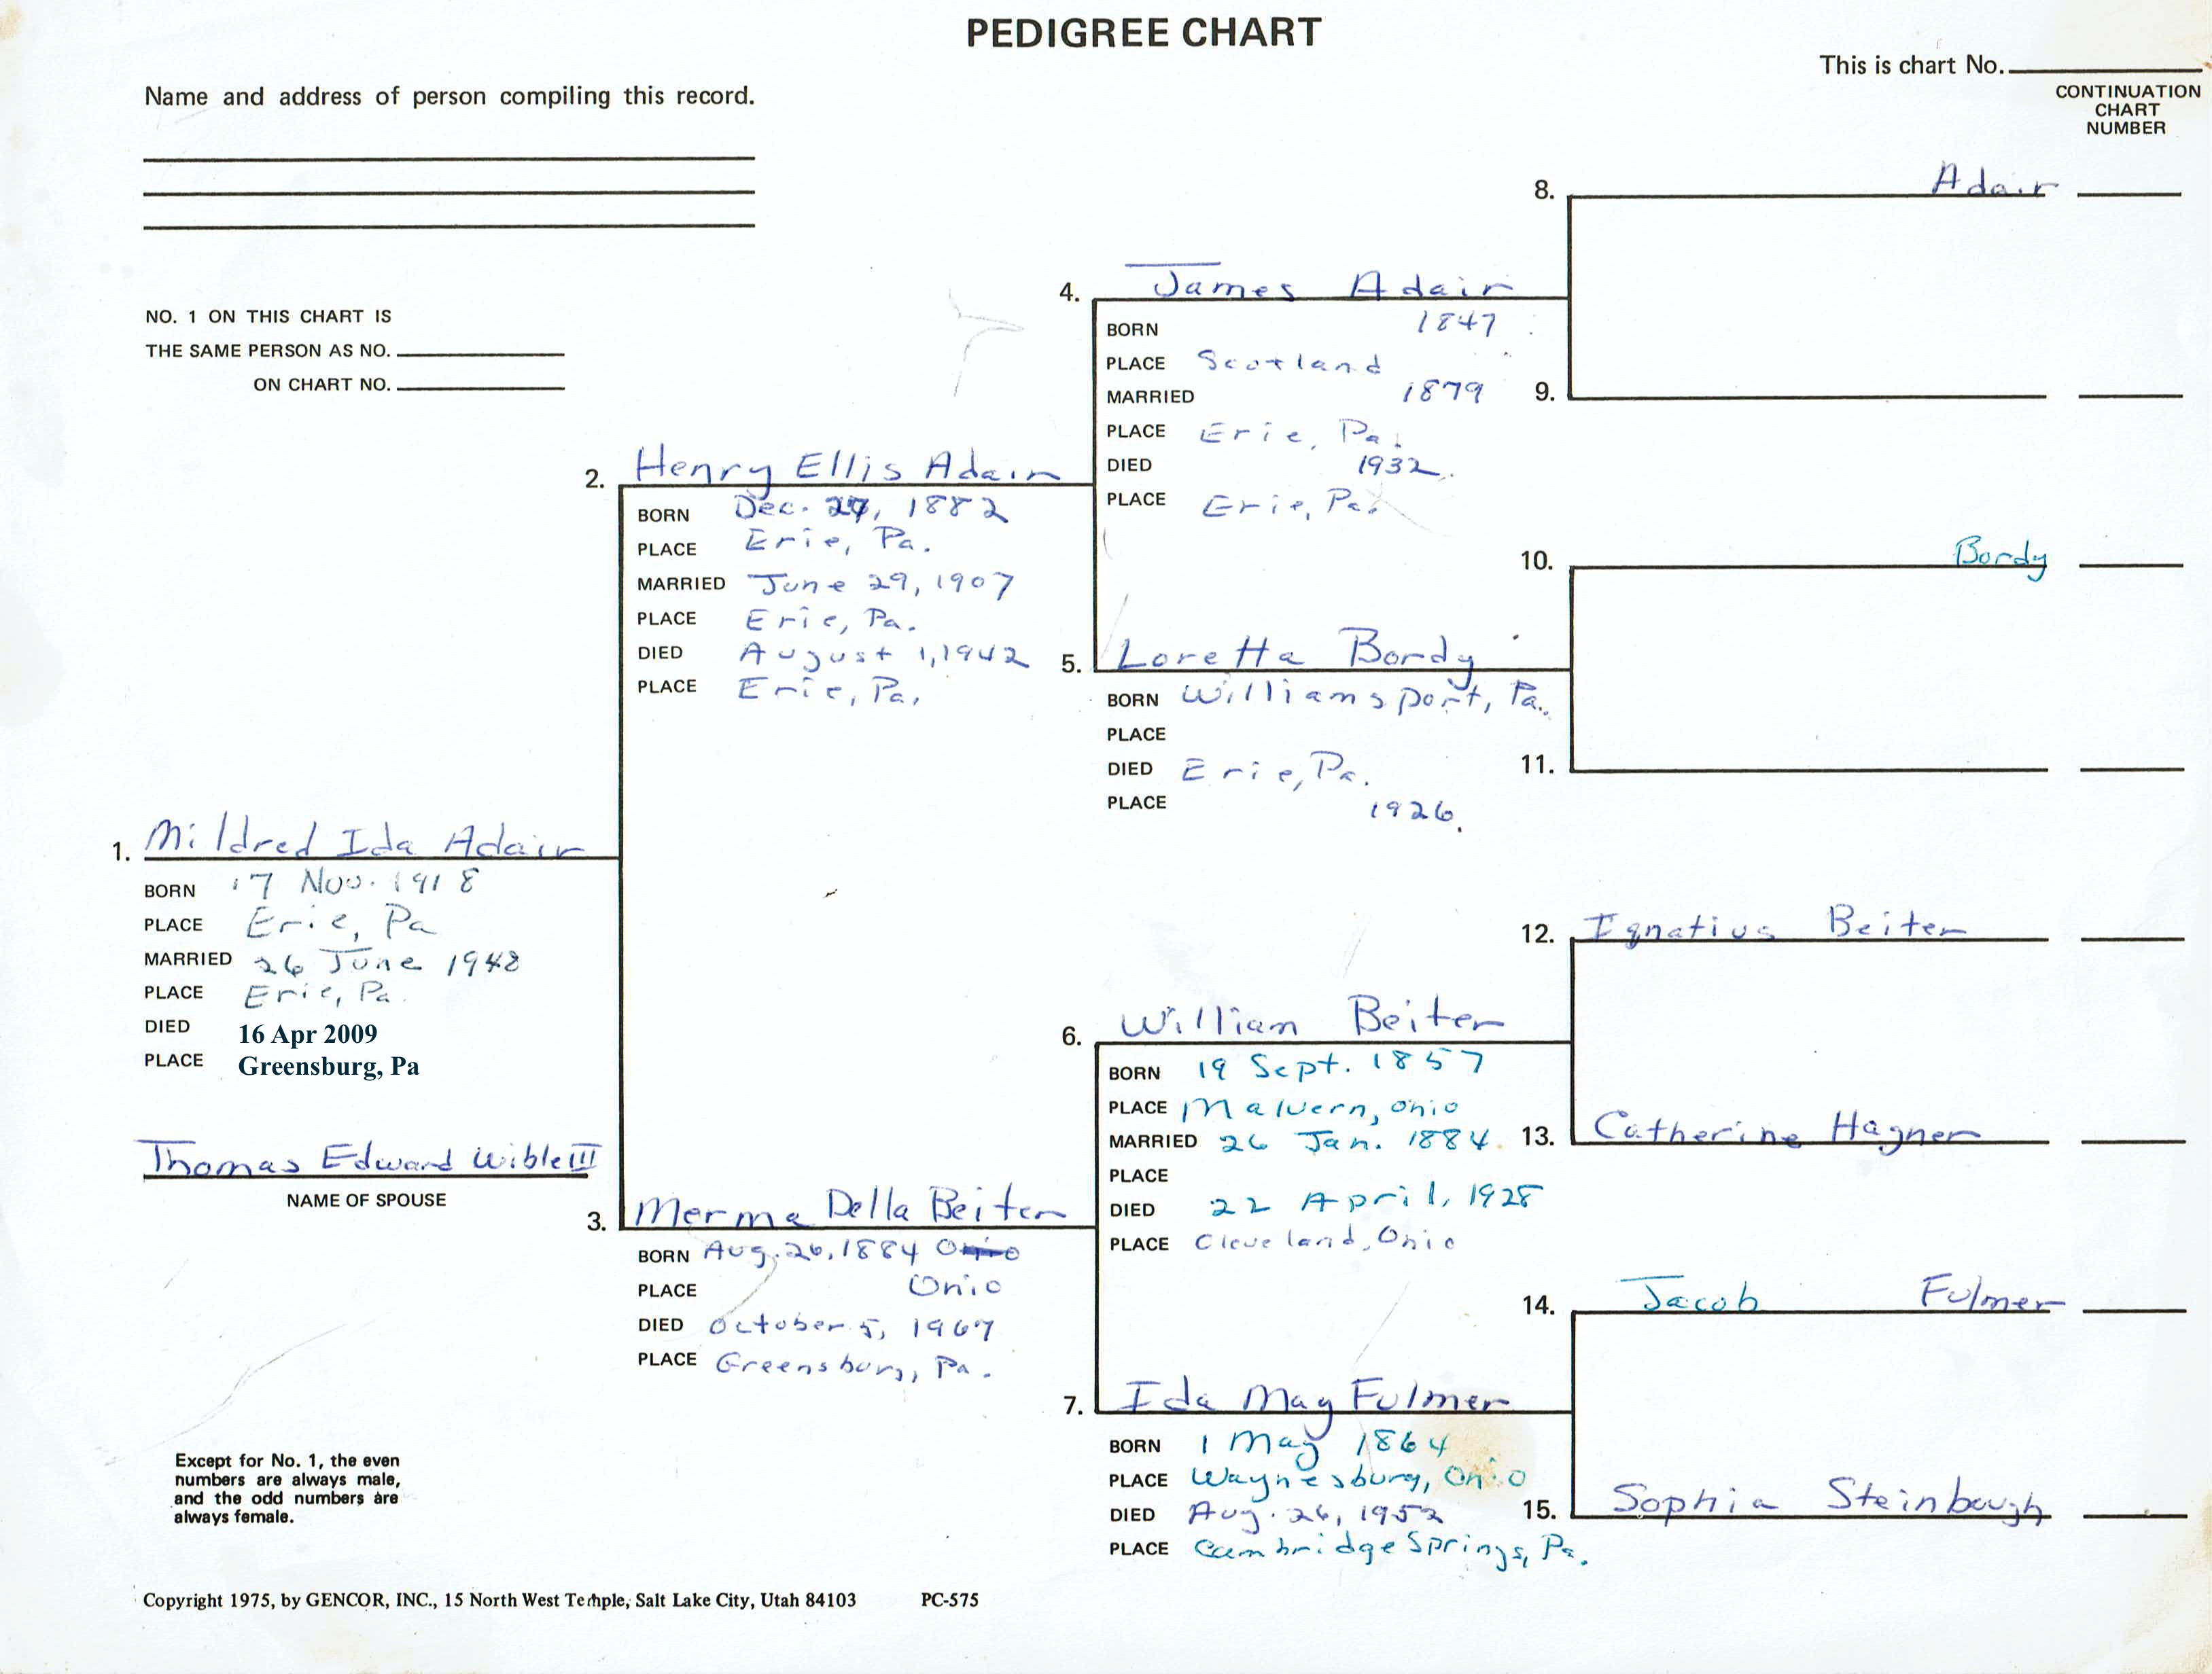 PEDIGREE CHART
This is chart No.
Name and address of person compiling this record.
CONTINUATION
CHART
NUMBER
NO. 1 ON THIS CHART IS
THE SAME PERSON AS NO.
ON CHART NO.
1. Mildred Ida Adair
BORN 17 Nov. 1918
PLACE Erie, Pa
MARRIED 26 June 1948
PLACE Erie, Pa.
DIED 16 Apr 2009
PLACE Greensburg, Pa
Thomas Edward Wible III
NAME OF SPOUSE
2. Henry Ellis Adair
BORN Dec. 27, 1882
PLACE Erie, Pa.
MARRIED June 29, 1907
PLACE Erie, Pa.
DIED August 1, 1942
PLACE Erie, Pa.
3. Merma Della Beiter
BORN Aug. 26, 1884 Ohio
PLACE Ohio
DIED October 5, 1967
PLACE Greensburg, Pa.
4. James Adair
BORN 1847
PLACE Scotland
MARRIED 1879
PLACE Erie, Pa.
DIED 1932.
PLACE Erie, Pa.
5. Loretta Bordy
BORN Williamsport, Pa.
PLACE
DIED Erie, Pa.
PLACE 1926.
6. William Beiter
BORN 19 Sept. 1857
PLACE Malvern, Ohio
MARRIED 26 Jan. 1884
PLACE
DIED 22 April, 1928
PLACE Cleveland, Ohio
7. Ida May Fulmer
BORN 1 May 1864
PLACE Waynesburg, Ohio
DIED Aug. 26, 1952
PLACE Cambridge Springs, Pa.
8. Adair
9.
10. Bordy
11.
12. Ignatius Beiter
13. Catherine Hagner
14. Jacob Fulmer
15. Sophia Steinbaugh
Except for No. 1, the even
numbers are always male,
and the odd numbers are
always female.
Copyright 1975, by GENCOR, INC., 15 North West Temple, Salt Lake City, Utah 84103 PC-575